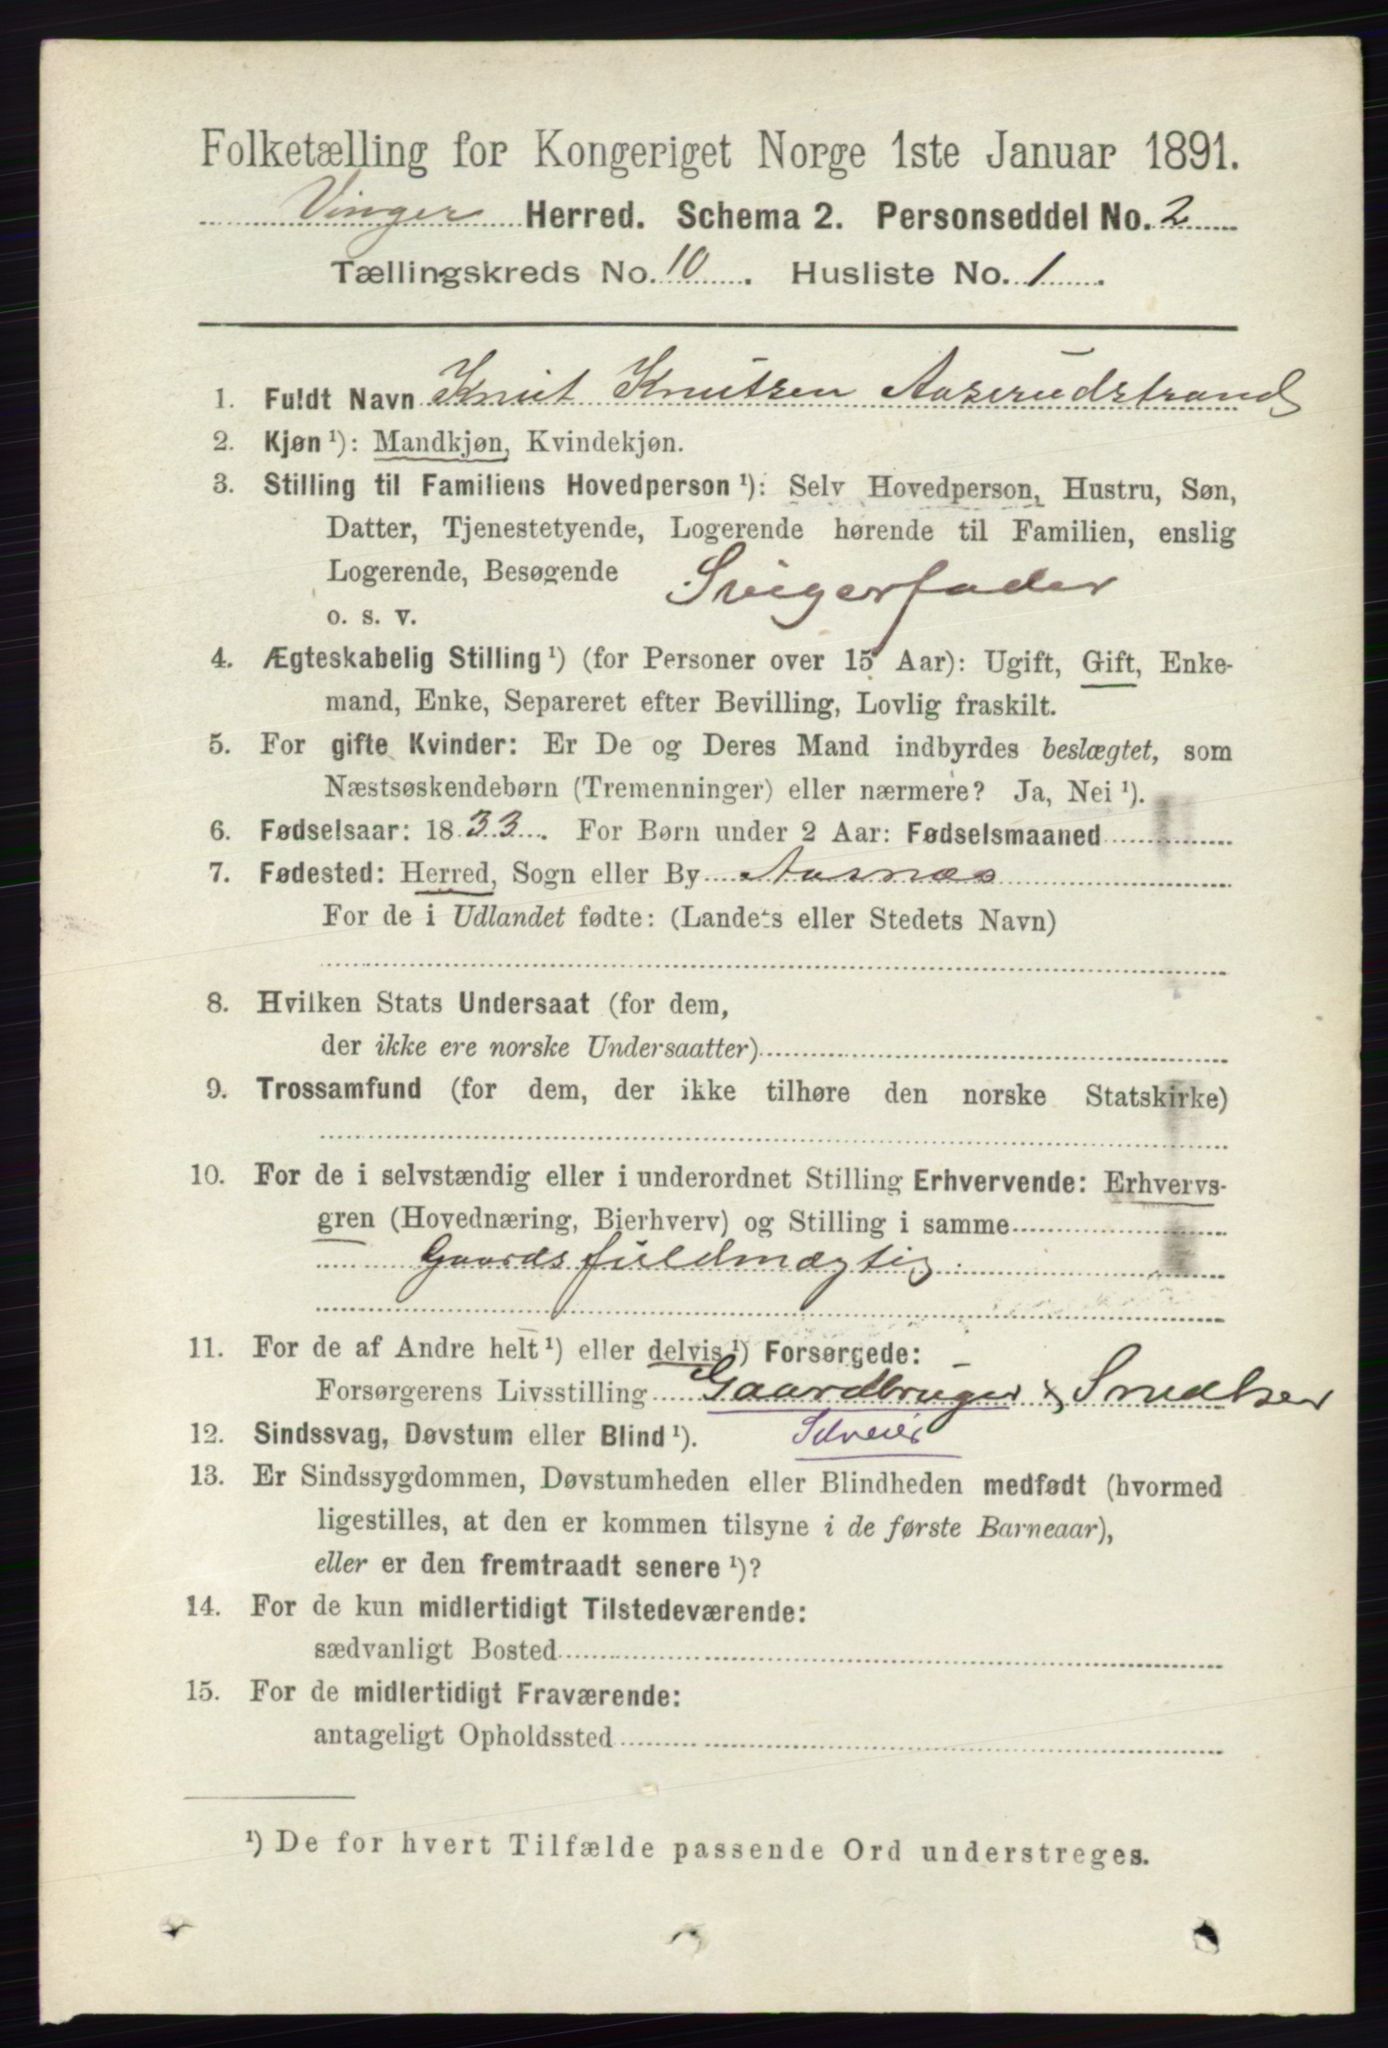 Folketælling for Kongeriget Norge 1ste Januar 1891.
Vinger Herred. Schema 2. Personseddel No. 2
Tællingskreds No. 10. Husliste No. 1.
1. Fuldt Navn Knut Knutsen Aaserudstrand
2. Kjøn ¹): Mandkjøn, Kvindekjøn.
3. Stilling til Familiens Hovedperson ¹): Selv Hovedperson, Hustru, Søn,
Datter, Tjenestetyende, Logerende hørende til Familien, enslig
Logerende, Besøgende Svigerfader
o. s. v.
4. Ægteskabelig Stilling ¹) (for Personer over 15 Aar): Ugift, Gift, Enke-
mand, Enke, Separeret efter Bevilling, Lovlig fraskilt.
5. For gifte Kvinder: Er De og Deres Mand indbyrdes beslægtet, som
Næstsøskendebørn (Tremenninger) eller nærmere? Ja, Nei ¹).
6. Fødselsaar: 1833. For Børn under 2 Aar: Fødselsmaaned
7. Fødested: Herred, Sogn eller By Aasnæs
For de i Udlandet fødte: (Landets eller Stedets Navn)
8. Hvilken Stats Undersaat (for dem,
der ikke ere norske Undersaatter)
9. Trossamfund (for dem, der ikke tilhøre den norske Statskirke)
10. For de i selvstændig eller i underordnet Stilling Erhvervende: Erhvervs-
gren (Hovednæring, Bierhverv) og Stilling i samme
Gaardsfuldmægtig.
11. For de af Andre helt ¹) eller delvis ¹) Forsørgede:
Forsørgerens Livsstilling Gaardbruger & Snedker
12. Sindssvag, Døvstum eller Blind ¹). Selveier
13. Er Sindssygdommen, Døvstumheden eller Blindheden medfødt (hvormed
ligestilles, at den er kommen tilsyne i de første Barneaar),
eller er den fremtraadt senere ¹)?
14. For de kun midlertidigt Tilstedeværende:
sædvanligt Bosted
15. For de midlertidigt Fraværende:
antageligt Opholdssted
¹) De for hvert Tilfælde passende Ord understreges.